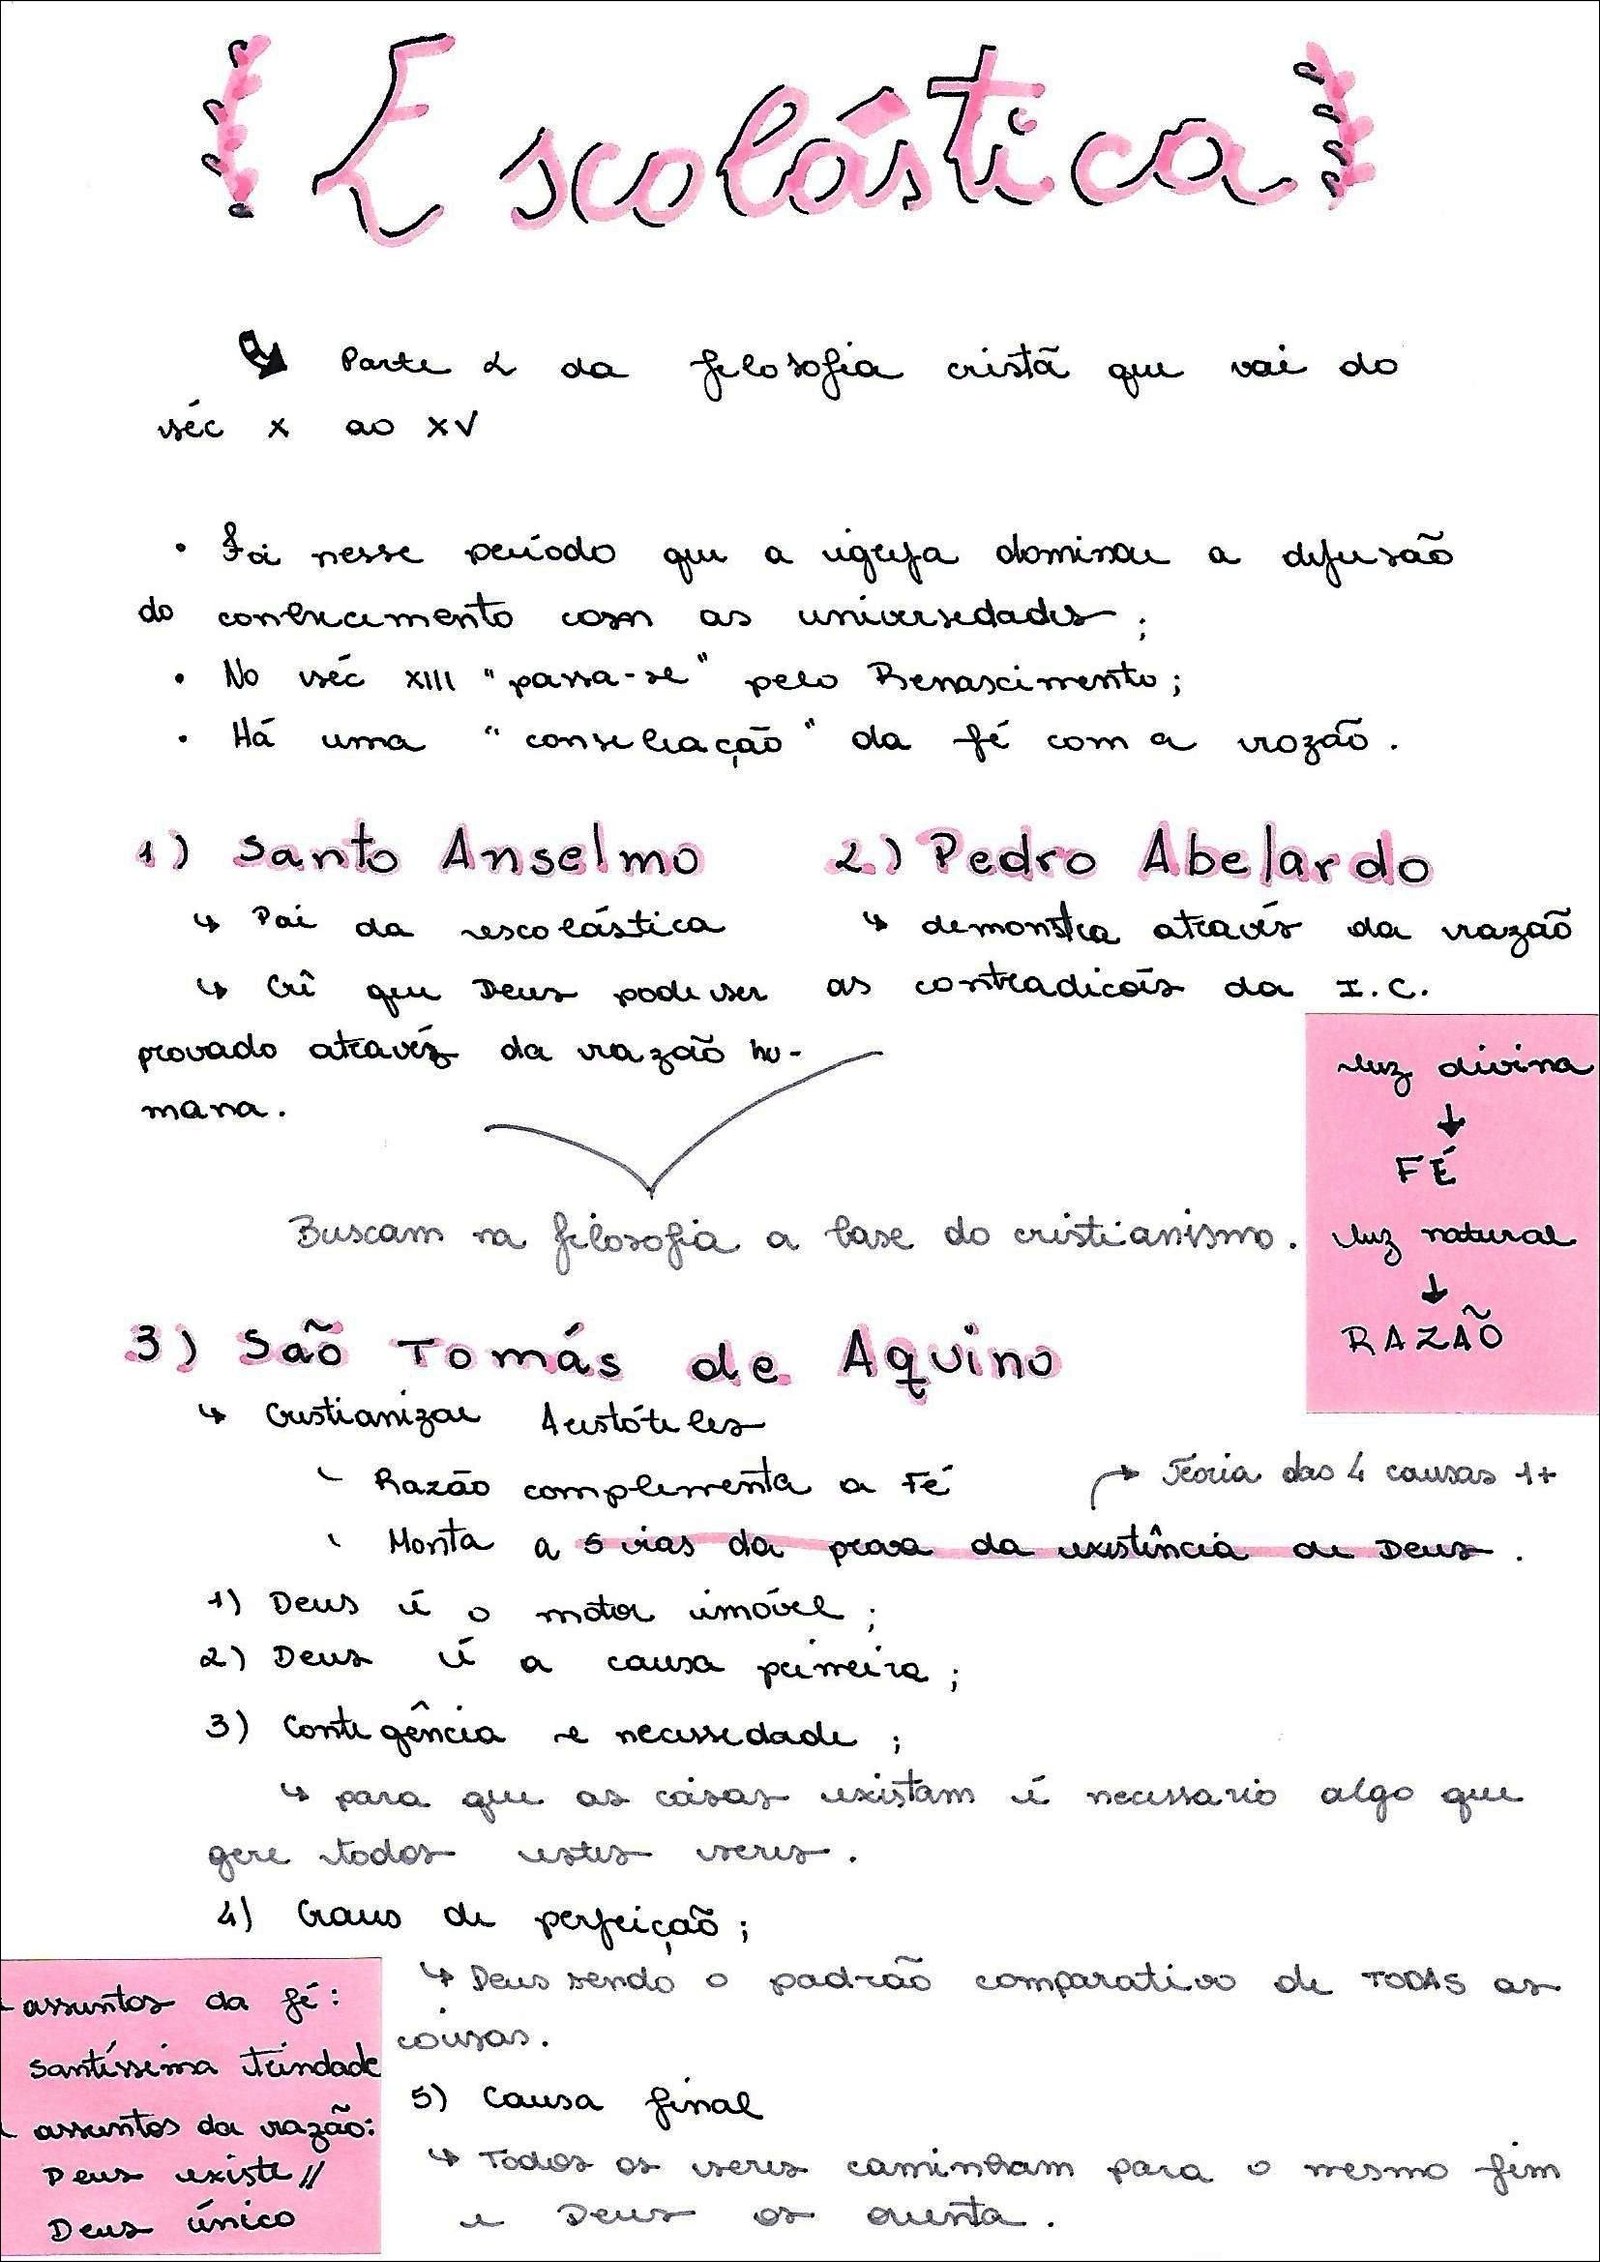 Escolástica
Parte 2 da filosofia cristã que vai do
séc X ao XV
• Foi nesse período que a igreja dominou a difusão
do conhecimento com as universidades;
• No séc XIII "passa-se" pelo Renascimento;
• Há uma "consiliação" da fé com a razão.
1) Santo Anselmo
↳ Pai da escolástica
↳ Crê que Deus pode ser
provado atravéz da razão hu-
mana.
2) Pedro Abelardo
↳ demonstra através da razão
as contradicões da I.C.
Buscam na filosofia a base do cristianismo.
luz divina
↓
FÉ
luz natural
↓
RAZÃO
3) São Tomás de Aquino
↳ Cristianizar Aristóteles
- Razão complementa a Fé
→ Teoria das 4 causas 1+
- Monta a 5 vias da prova da existência de Deus.
1) Deus é o motor imóvel;
2) Deus é a causa primeira;
3) Contigência e necessidade;
↳ para que as coisas existam é necessario algo que
gere todos estes seres.
4) Graus de perfeição;
↳ Deus sendo o padrão comparativo de TODAS as
coisas.
5) Causa final
↳ Todos os seres caminham para o mesmo fim
e Deus os orienta.
- assuntos da fé:
Santíssima trindade
- assuntos da razão:
Deus existe //
Deus único